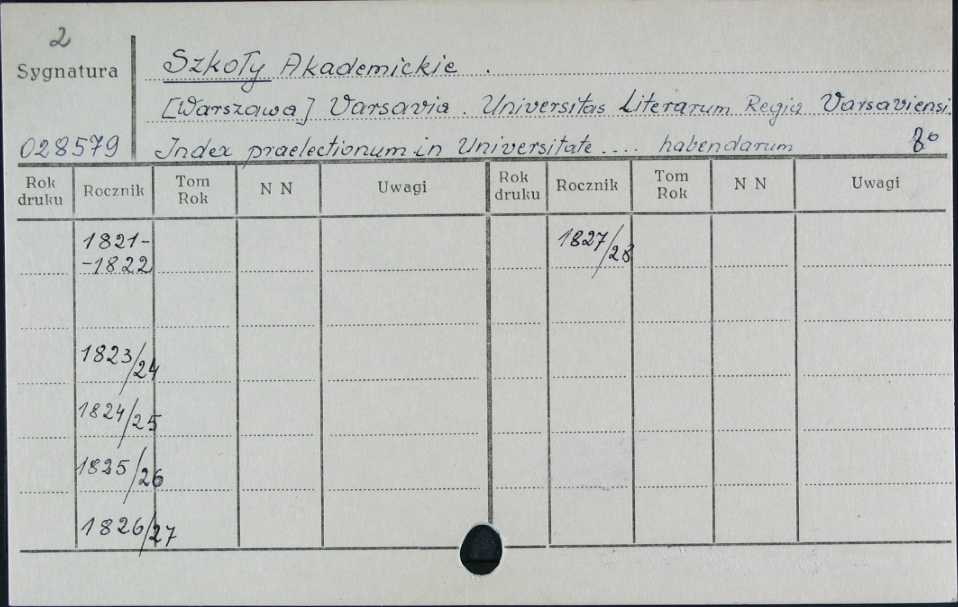 2
Sygnatura
Szkoły Akademickie .
[Warszawa] Varsavia. Universitas Literarum Regia Varsaviensi.
028579 Index praelectionum in Universitate .... habendarum 8º
Rok druku Rocznik Tom Rok N N Uwagi Rok druku Rocznik Tom Rok N N Uwagi
1821- 1827/28
-1822
1823/24
1824/25
1825/26
1826/27